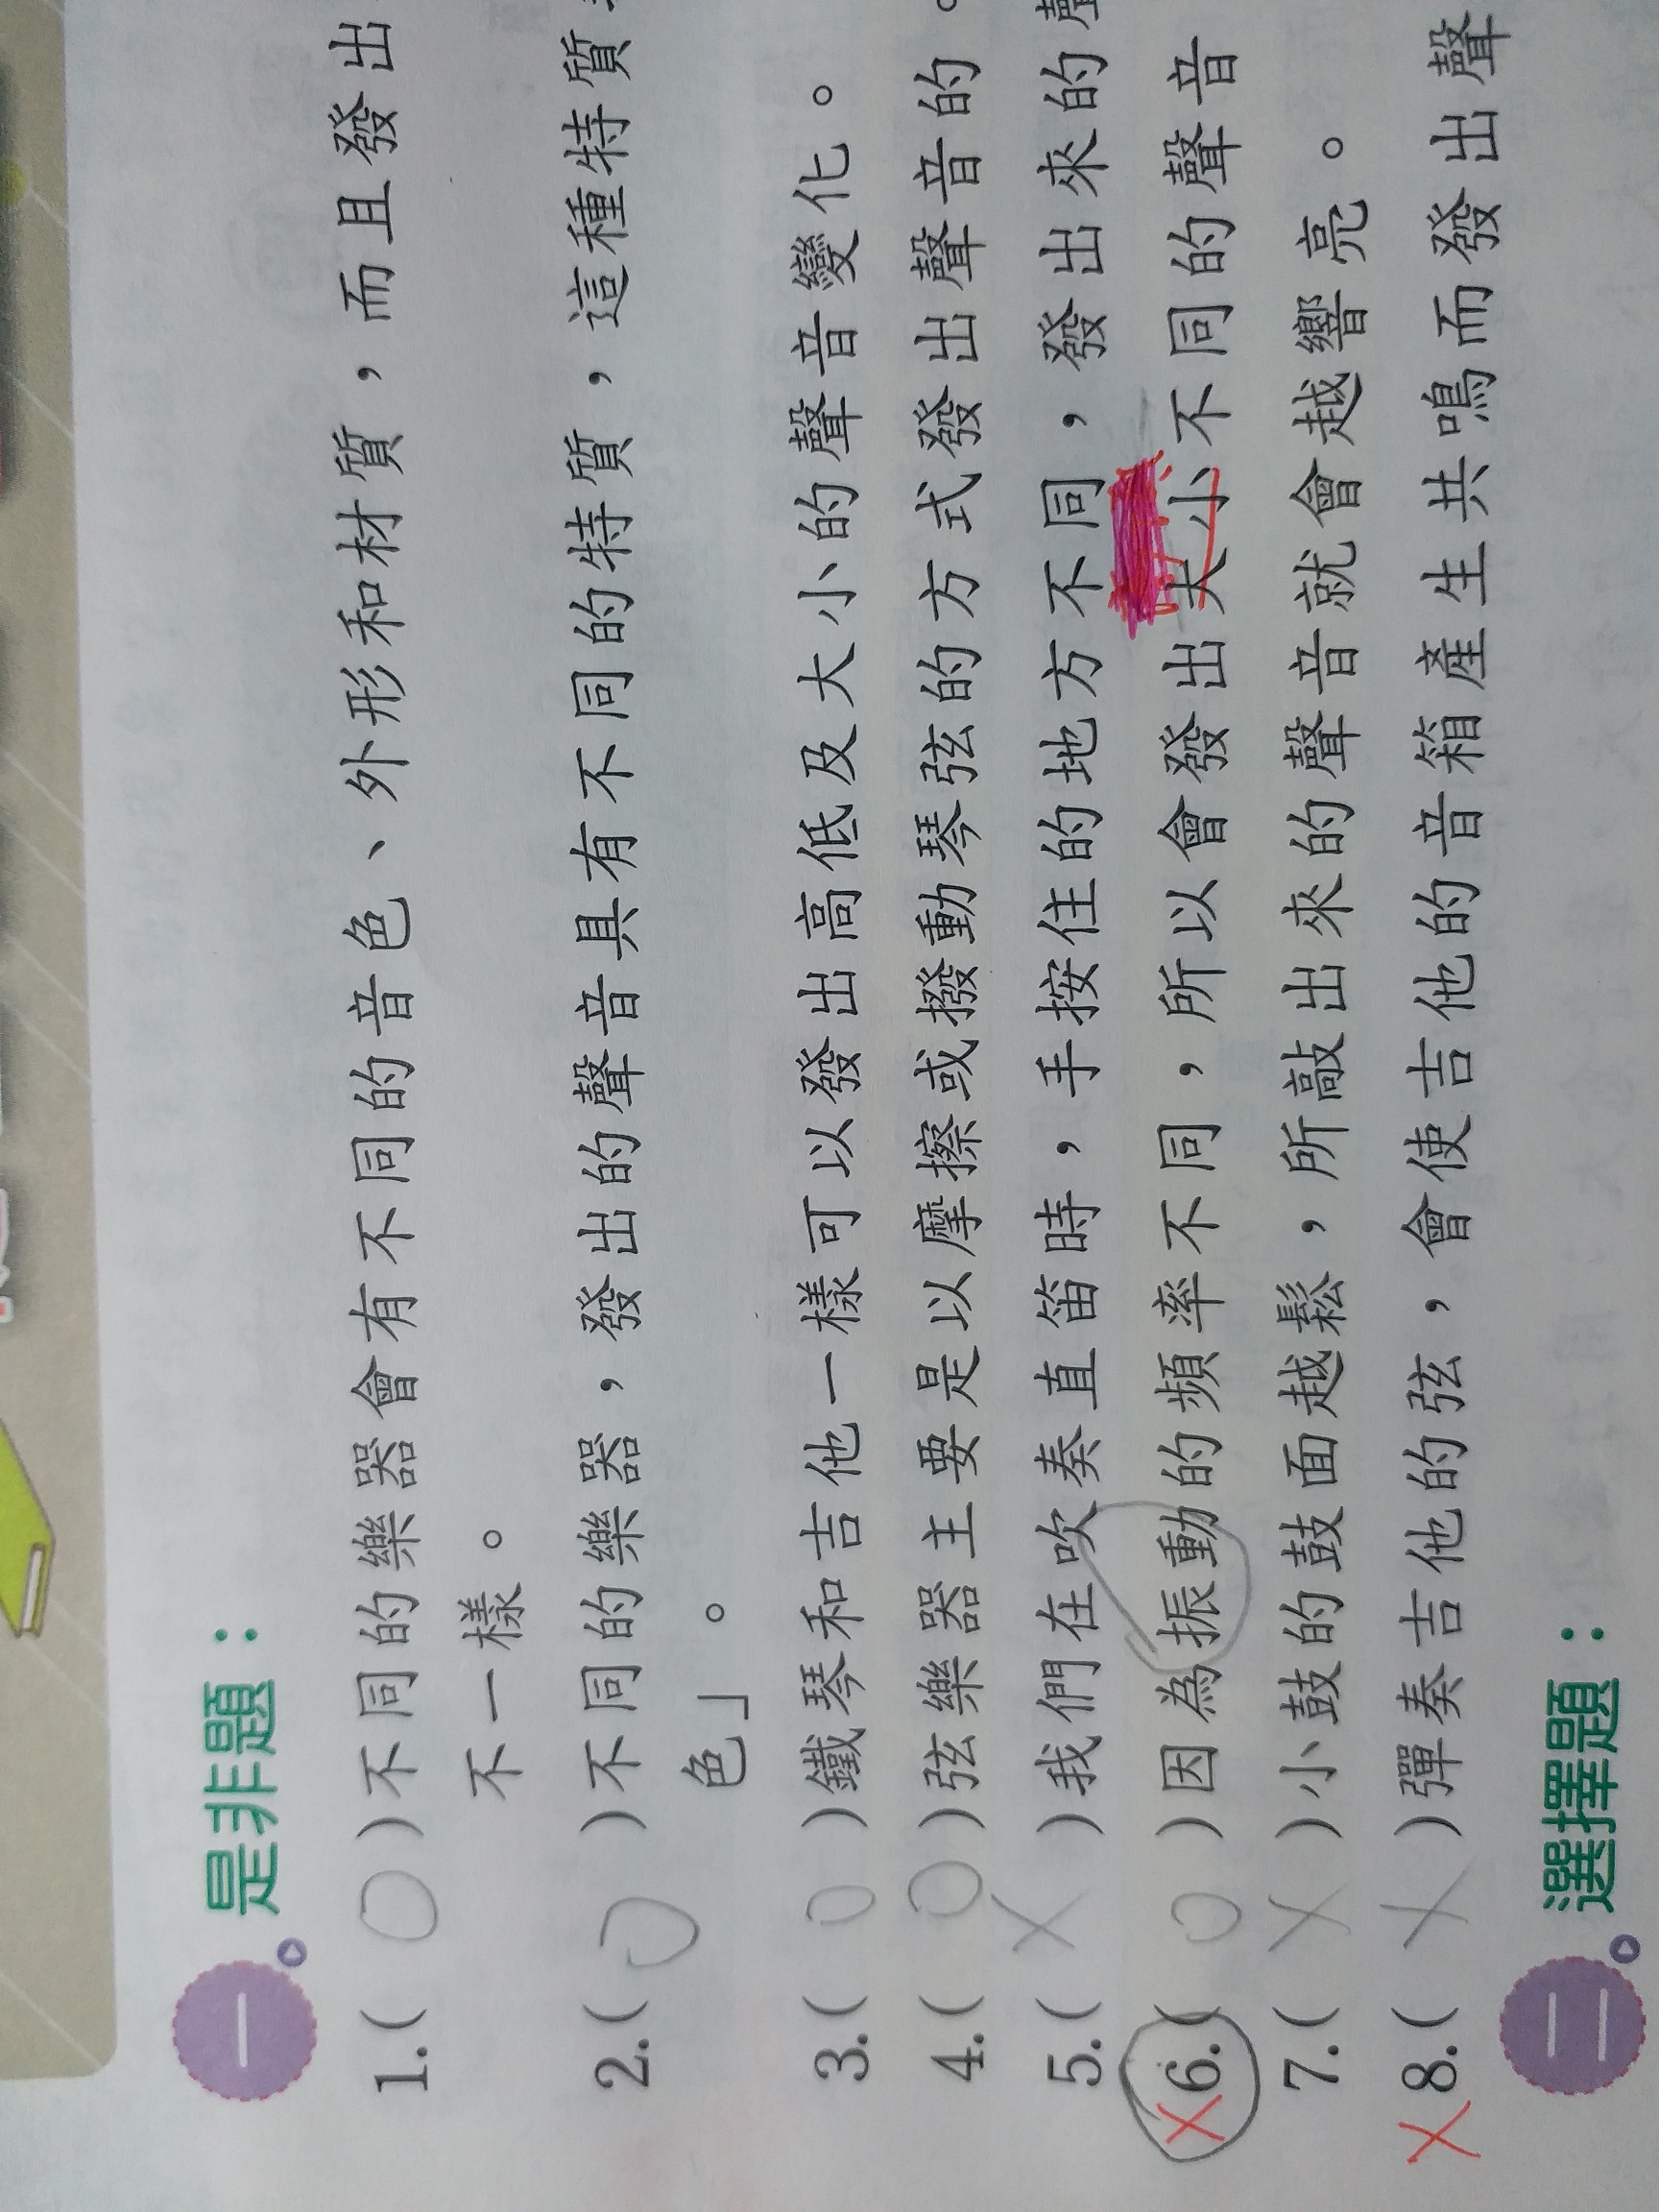 一 是非題：
1.( O )不同的樂器會有不同的音色、外形和材質，而且發出
不一樣。
2.( O )不同的樂器，發出的聲音具有不同的特質，這種特質
色」。
3.( O )鐵琴和吉他一樣可以發出高低及大小的聲音變化。
4.( O )弦樂器主要是以摩擦或撥動琴弦的方式發出聲音的。
5.( X )我們在吹奏直笛時，手按住的地方不同，發出來的聲
X 6.( O )因為振動的頻率不同，所以會發出大小不同的聲音
7.( X )小鼓的鼓面越鬆，所敲出來的聲音就會越響亮。
X 8.( X )彈奏吉他的弦，會使吉他的音箱產生共鳴而發出聲
二 選擇題：